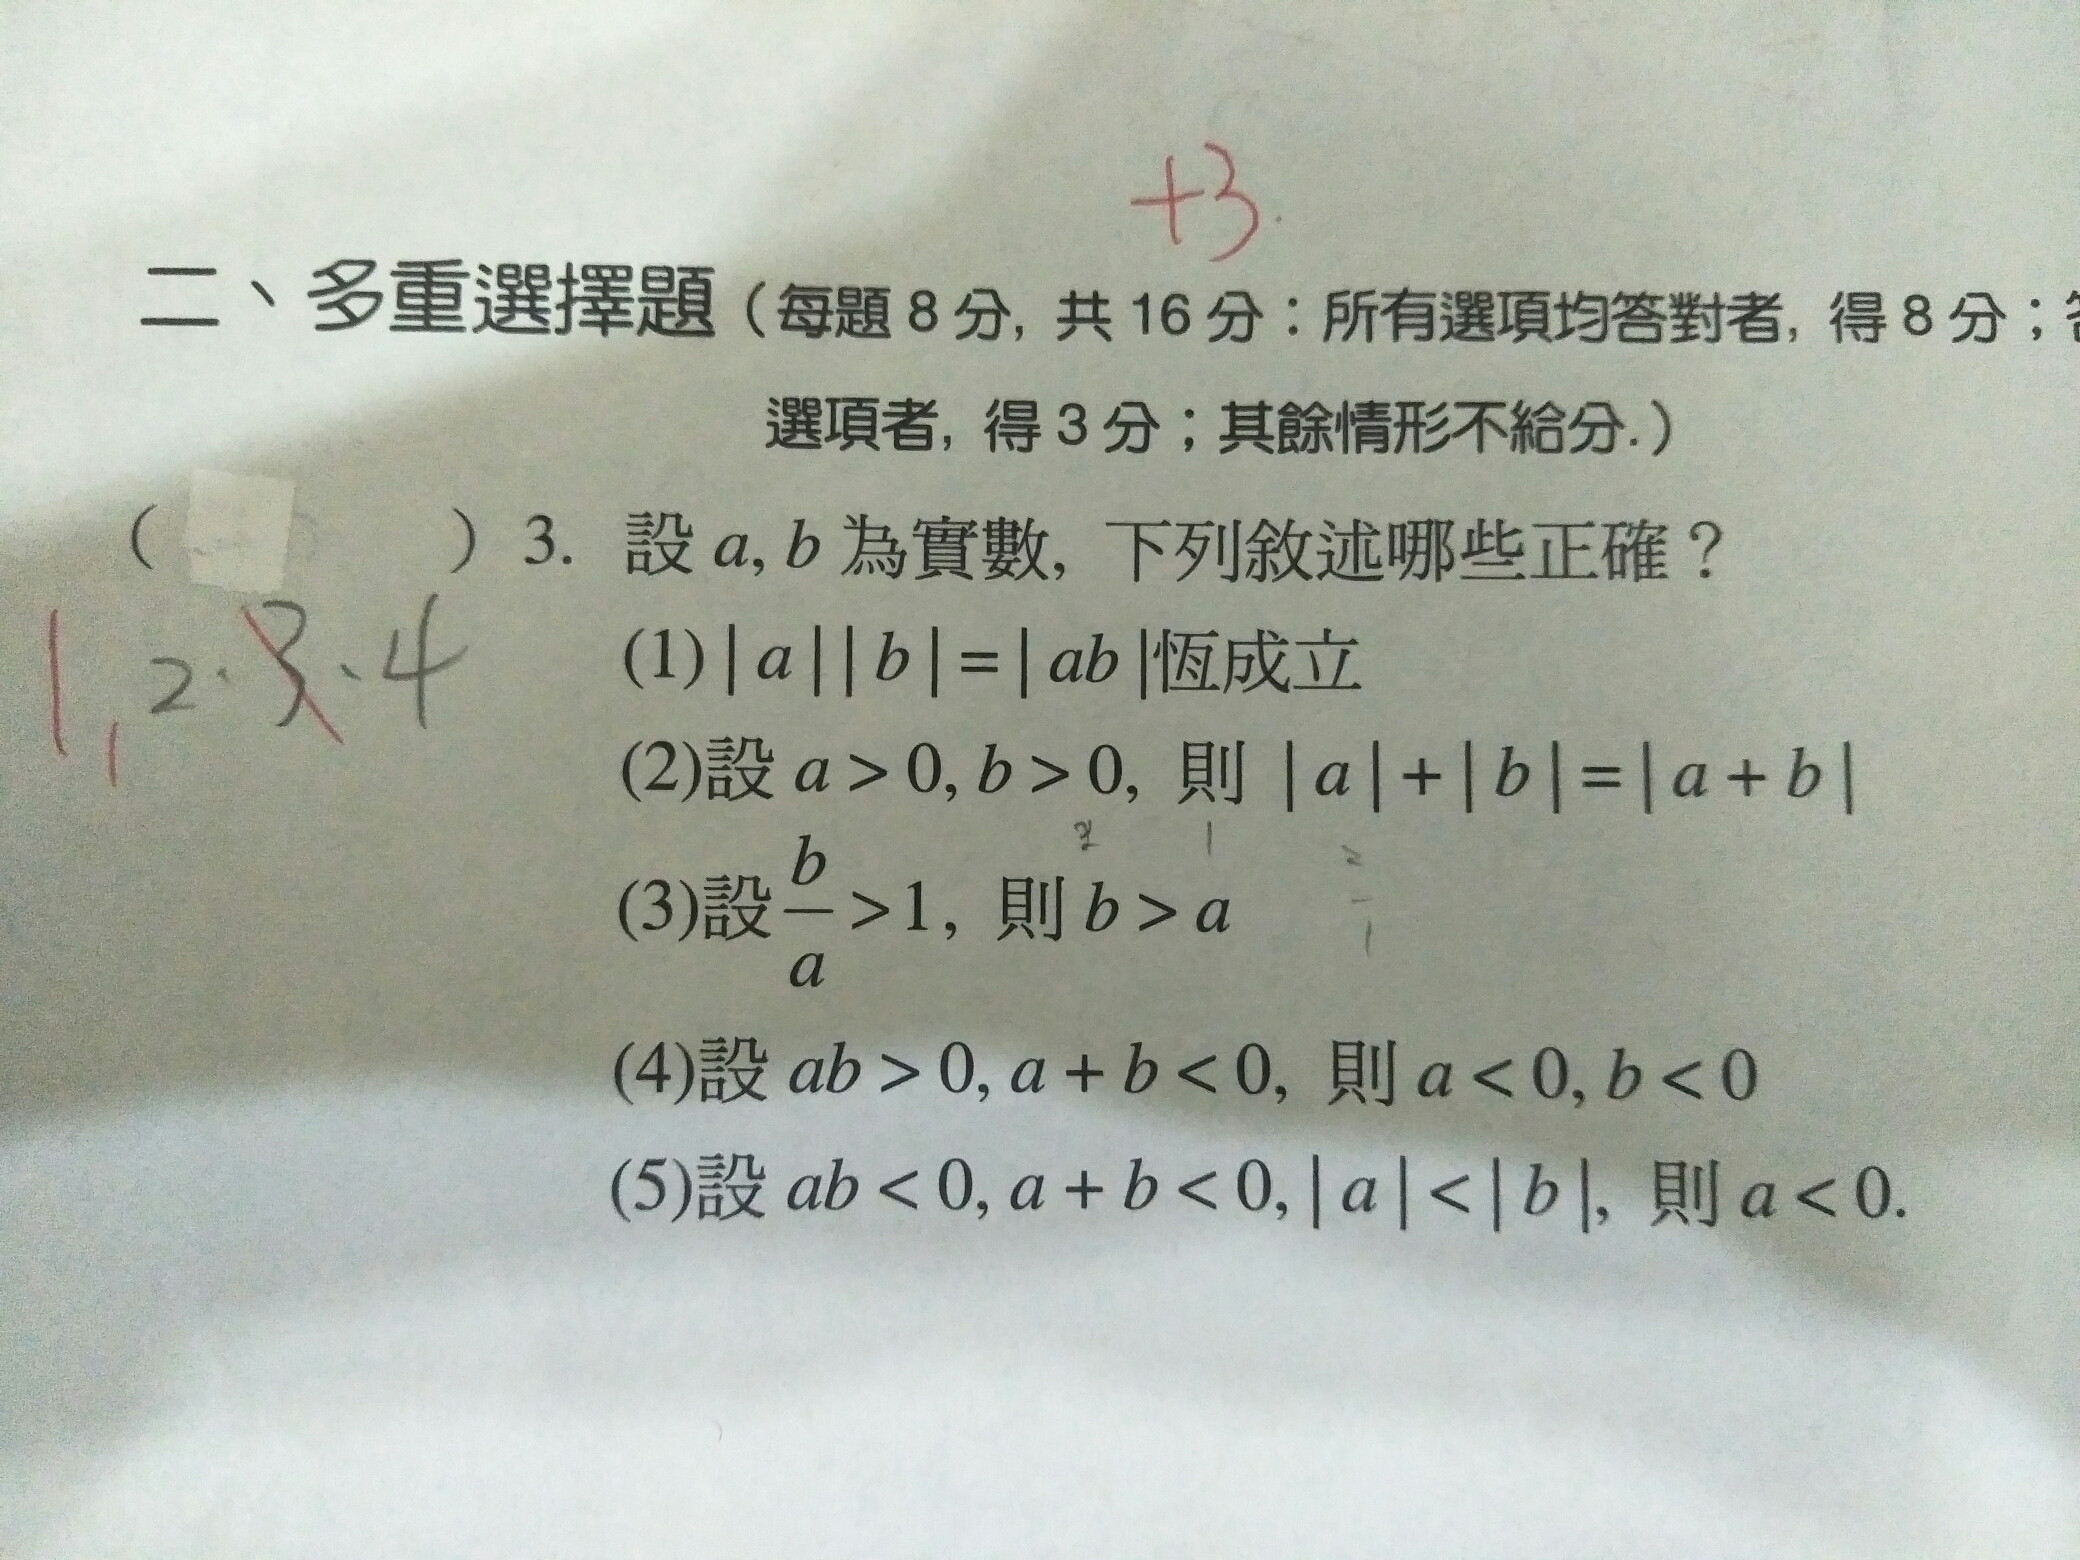 +3
二、多重選擇題（每題 8 分, 共 16 分：所有選項均答對者, 得 8 分；
選項者, 得 3 分；其餘情形不給分.）
（ ）3. 設 a, b 為實數, 下列敘述哪些正確？
1, 2.3、4
(1)| a || b | = | ab |恆成立
(2)設 a > 0, b > 0, 則 | a | + | b | = | a + b |
2 1 2/1
(3)設 b/a > 1, 則 b > a
(4)設 ab > 0, a + b < 0, 則 a < 0, b < 0
(5)設 ab < 0, a + b < 0, | a | < | b |, 則 a < 0.